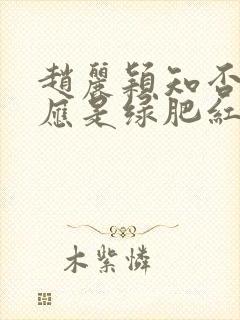 趙麗穎知否
應是绿肥紅
木紫憐